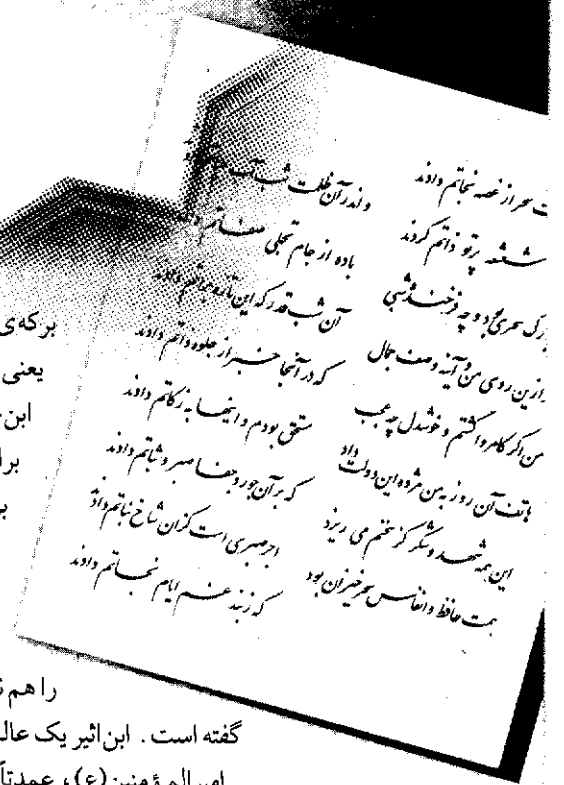 ت سحر از غصه نجاتم دادند
و ندر آن ظلمت شب آب
شعشعه پرتو ذاتم کردند
باده از جام تجلی صفاتم
رک سحری بود و چه فرخنده شبی
آن شب قدر که این تازه براتم دادند
ازین روی من و آینه وصف جمال
که در آنجا خبر از جلوه ذاتم دادند
من اگر کامروا گشتم و خوشدل چه عجب
مستحق بودم و اینها به زکاتم دادند
هاتف آن روز به من مژده این دولت داد
که بر آن جور و جفا صبر و ثباتم دادند
این همه شهد و شکر کز سخنم می ریزد
اجر صبری است کزان شاخ نباتم دادند
همت حافظ و انفاس سحرخیزان بود
که ز بند غم ایام نجاتم دادند
برکه‌ی
یعنی
ابن
برا
بر
را هم
گفته است. ابن اثیر یک عال
امیرالمؤمنین (ع)، عمدتاً